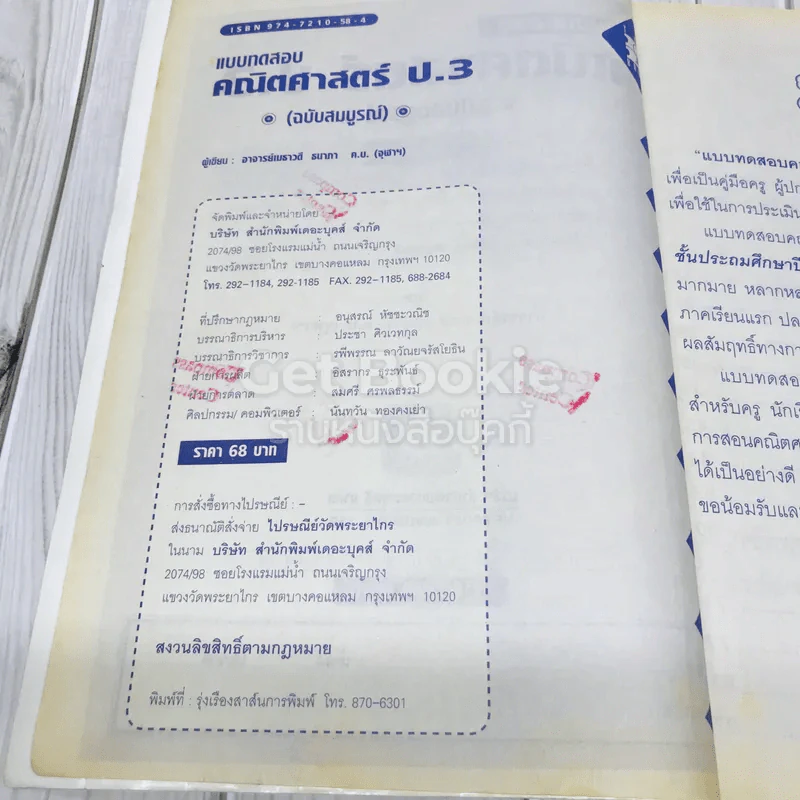 ISBN 974-7210-58-4
แบบทดสอบ
คณิตศาสตร์ ป.3
(ฉบับสมบูรณ์)
ผู้เขียน : อาจารย์เมธาวดี ธนาภา ค.บ. (จุฬาฯ)
จัดพิมพ์และจำหน่ายโดย
บริษัท สำนักพิมพ์เดอะบุคส์ จำกัด
2074/98 ซอยโรงแรมแม่น้ำ ถนนเจริญกรุง
แขวงวัดพระยาไกร เขตบางคอแหลม กรุงเทพฯ 10120
โทร. 292-1184, 292-1185 FAX. 292-1185, 688-2684
ที่ปรึกษากฎหมาย : อนุสรณ์ หัชชะวณิช
บรรณาธิการบริหาร : ประชา ศิวเวทกุล
บรรณาธิการวิชาการ : รพีพรรณ ลาวัณยจรัสโยธิน
ฝ่ายการผลิต : อิสรากร ธุระพันธ์
ฝ่ายการตลาด : สมศรี ศรพลธรรม์
ศิลปกรรม/ คอมพิวเตอร์ : นันทวัน ทองคงเย่า
Get Bookie
ร้านหนังสือบุ๊คกี้
ราคา 68 บาท
การสั่งซื้อทางไปรษณีย์ : –
ส่งธนาณัติสั่งจ่าย ไปรษณีย์วัดพระยาไกร
ในนาม บริษัท สำนักพิมพ์เดอะบุคส์ จำกัด
2074/98 ซอยโรงแรมแม่น้ำ ถนนเจริญกรุง
แขวงวัดพระยาไกร เขตบางคอแหลม กรุงเทพฯ 10120
สงวนลิขสิทธิ์ตามกฎหมาย
พิมพ์ที่ : รุ่งเรืองสาส์นการพิมพ์ โทร. 870-6301
"แบบทดสอบ
เพื่อเป็นคู่มือครู
เพื่อใช้ในการประเมิน
แบบทดสอบ
ชั้นประถมศึกษาปี
มากมาย
ภาคเรียนแรก
ผลสัมฤทธิ์ทางกา
แบบทดสอ
สำหรับครู
การสอนคณิตศ
ได้เป็นอย่างดี
ขอน้อมรับและ